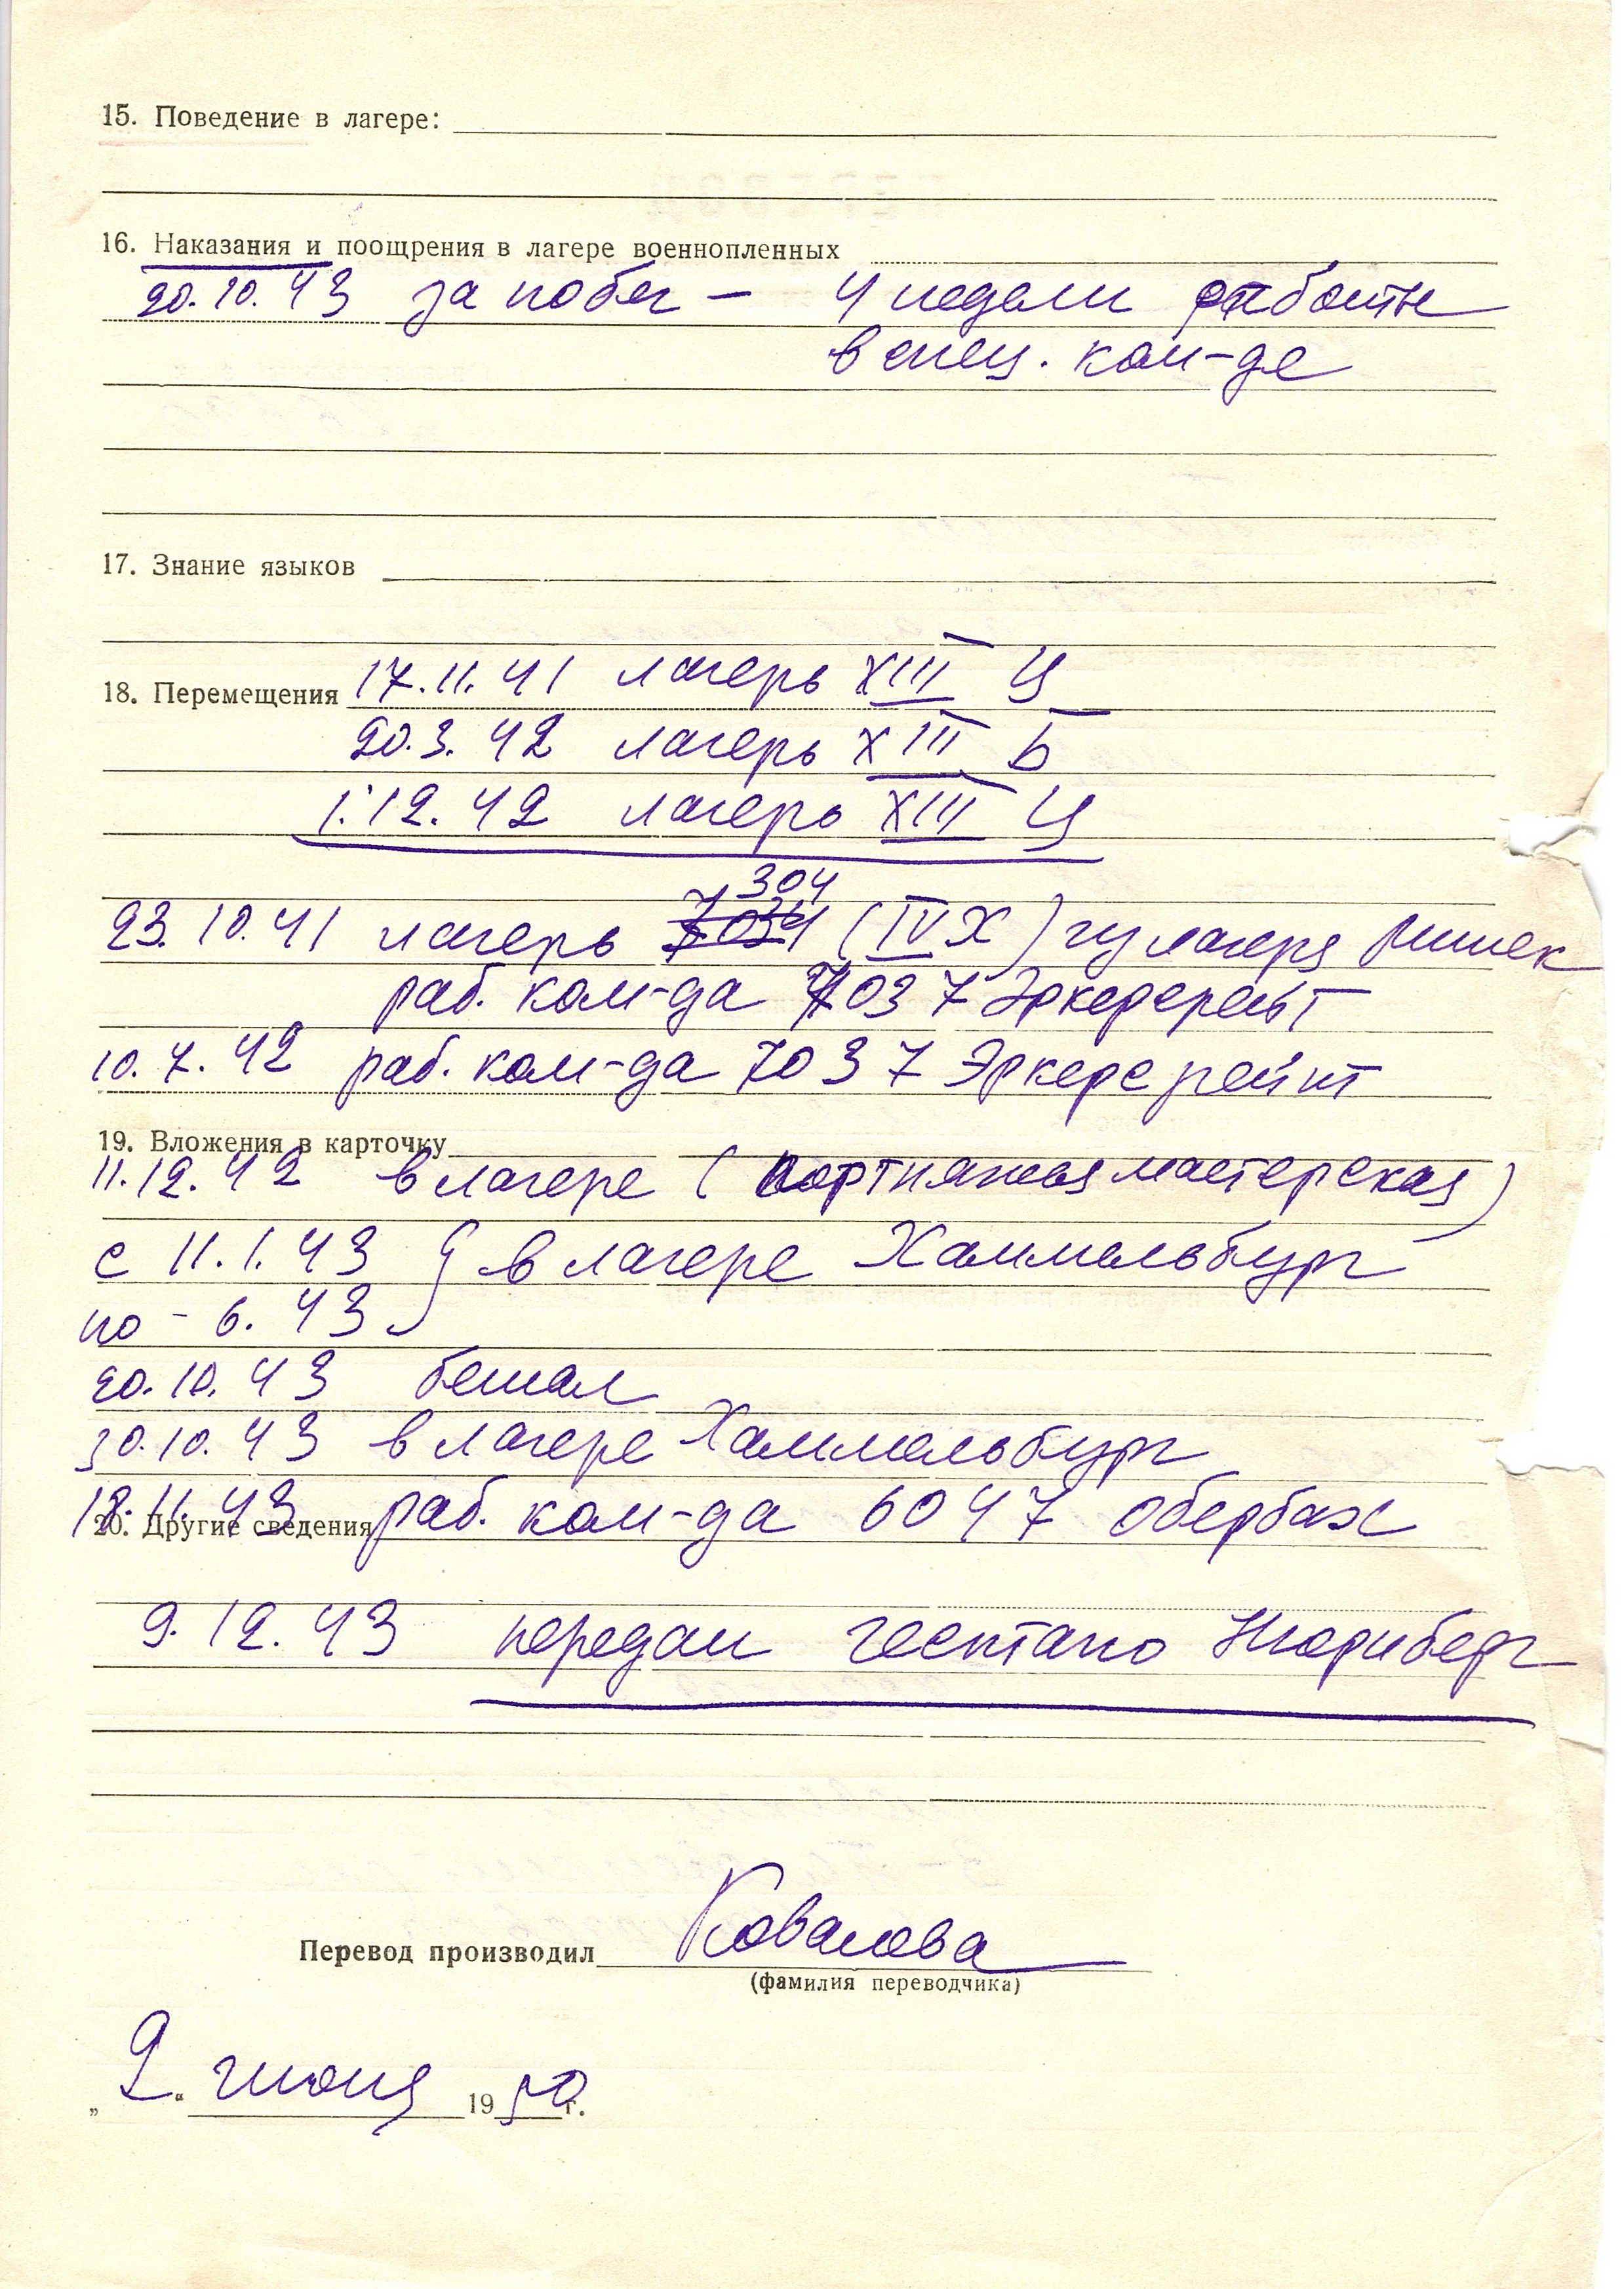 15. Поведение в лагере:
16. Наказания и поощрения в лагере военнопленных
20.10.43 за побег – 4 недели работы
в спец. ком-де
17. Знание языков
18. Перемещения 17.11.41 лагерь XIII Ц
20.3.42 лагерь XIII Б
1.12.42 лагерь XIII Ц
304
23.10.41 лагерь (IV Х) из лагеря
раб. ком-да 7037
10.7.42 раб. ком-да 7037
19. Вложения в карточку
11.12.42 в лагере (портняжная мастерская)
с 11.1.43 } в лагере Хаммельбург
по – 6.43
20.10.43 бежал
30.10.43 в лагере Хаммельбург
20. Другие сведения
18.11.43 раб. ком-да 6047 Обербах
9.12.43 передан гестапо Нюрнберг
Перевод производил Ковалева
(фамилия переводчика)
„2“ июня 1950 г.